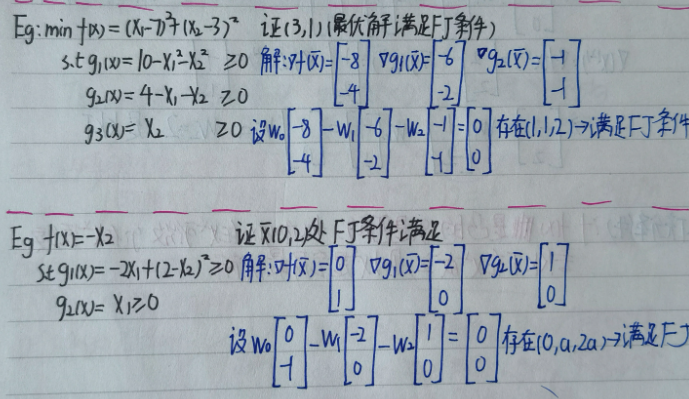 Eg: min f(x) = (x₁-7)²+(x₂-3)² 证(3,1)(最优解满足FJ条件)
s.t g₁(x) = 10-x₁²-x₂² ≥0 解:∇f(x̄)=[-8 -4] ∇g₁(x̄)=[-6 -2] ∇g₂(x̄)=[-1 -1]
g₂(x) = 4-x₁-x₂ ≥0
g₃(x) = x₂ ≥0 设w₀[-8 -4]-w₁[-6 -2]-w₂[-1 -1]=[0 0] 存在(1,1,2)→满足FJ条件
Eg f(x)=-x₂ 证x̄(0,2)处FJ条件满足
s.t g₁(x)=-2x₁+(2-x₂)²≥0 解:∇f(x̄)=[0 1] ∇g₁(x̄)=[-2 0] ∇g₂(x̄)=[1 0]
g₂(x)= x₁≥0
设w₀[0 -1]-w₁[-2 0]-w₂[1 0]=[0 0] 存在(0,a,2a)→满足FJ